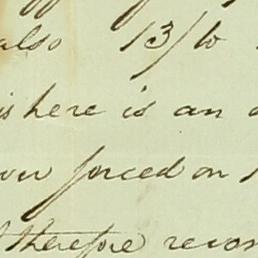 also 13/6
is here is an
forced on
therefore recom